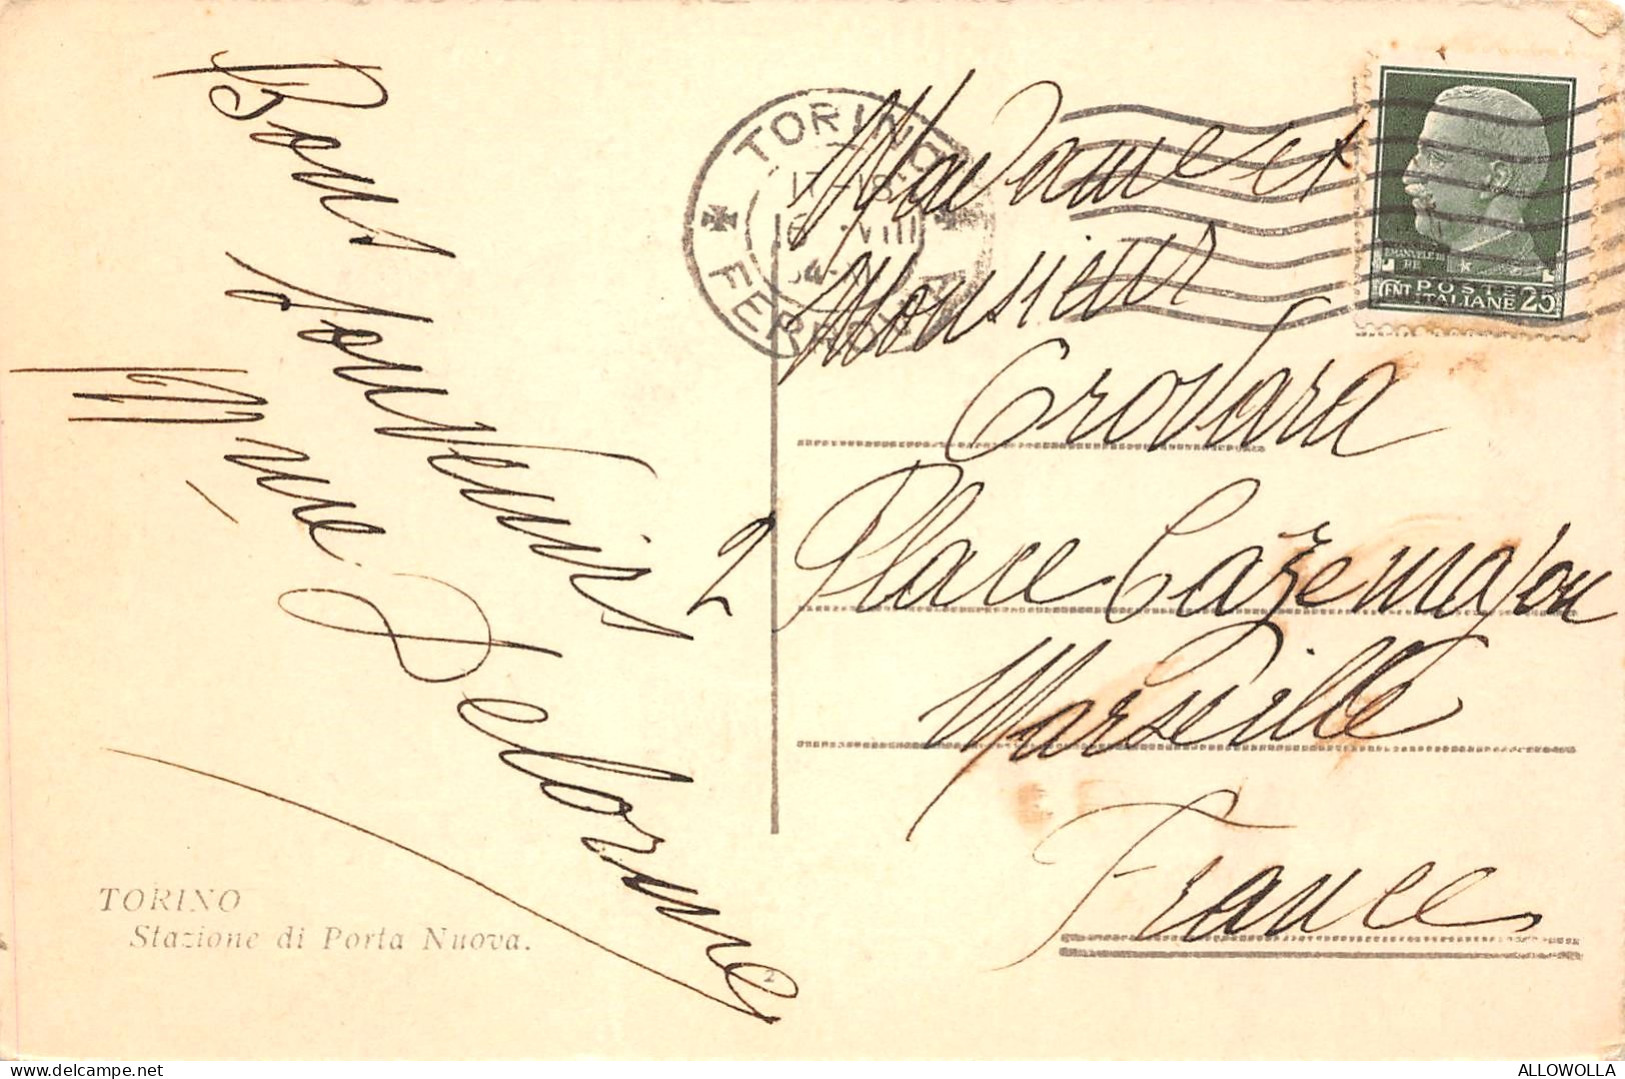 Bons souvenirs
Mme Delorme
TORINO
Stazione di Porta Nuova.
TORINO
17-18
VIII
FERROVIA
EMANUELE III
RE
CENT POSTE
ITALIANE 25
Madame et
Monsieur
Crovara
2 Place Cazemajou
Marseille
France
2
delcampe.net
ALLOWOLLA